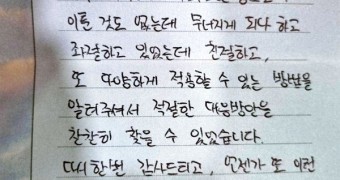 이룬 것도 없는데 무너지게 되나 하고
좌절하고 있었는데 친절하고,
또 다양하게 적용할 수 있는 방법을
알려주셔서 적절한 대응방안을
찬찬히 찾을 수 있었습니다.
다시한번 감사드리고, 언젠가 또 이런